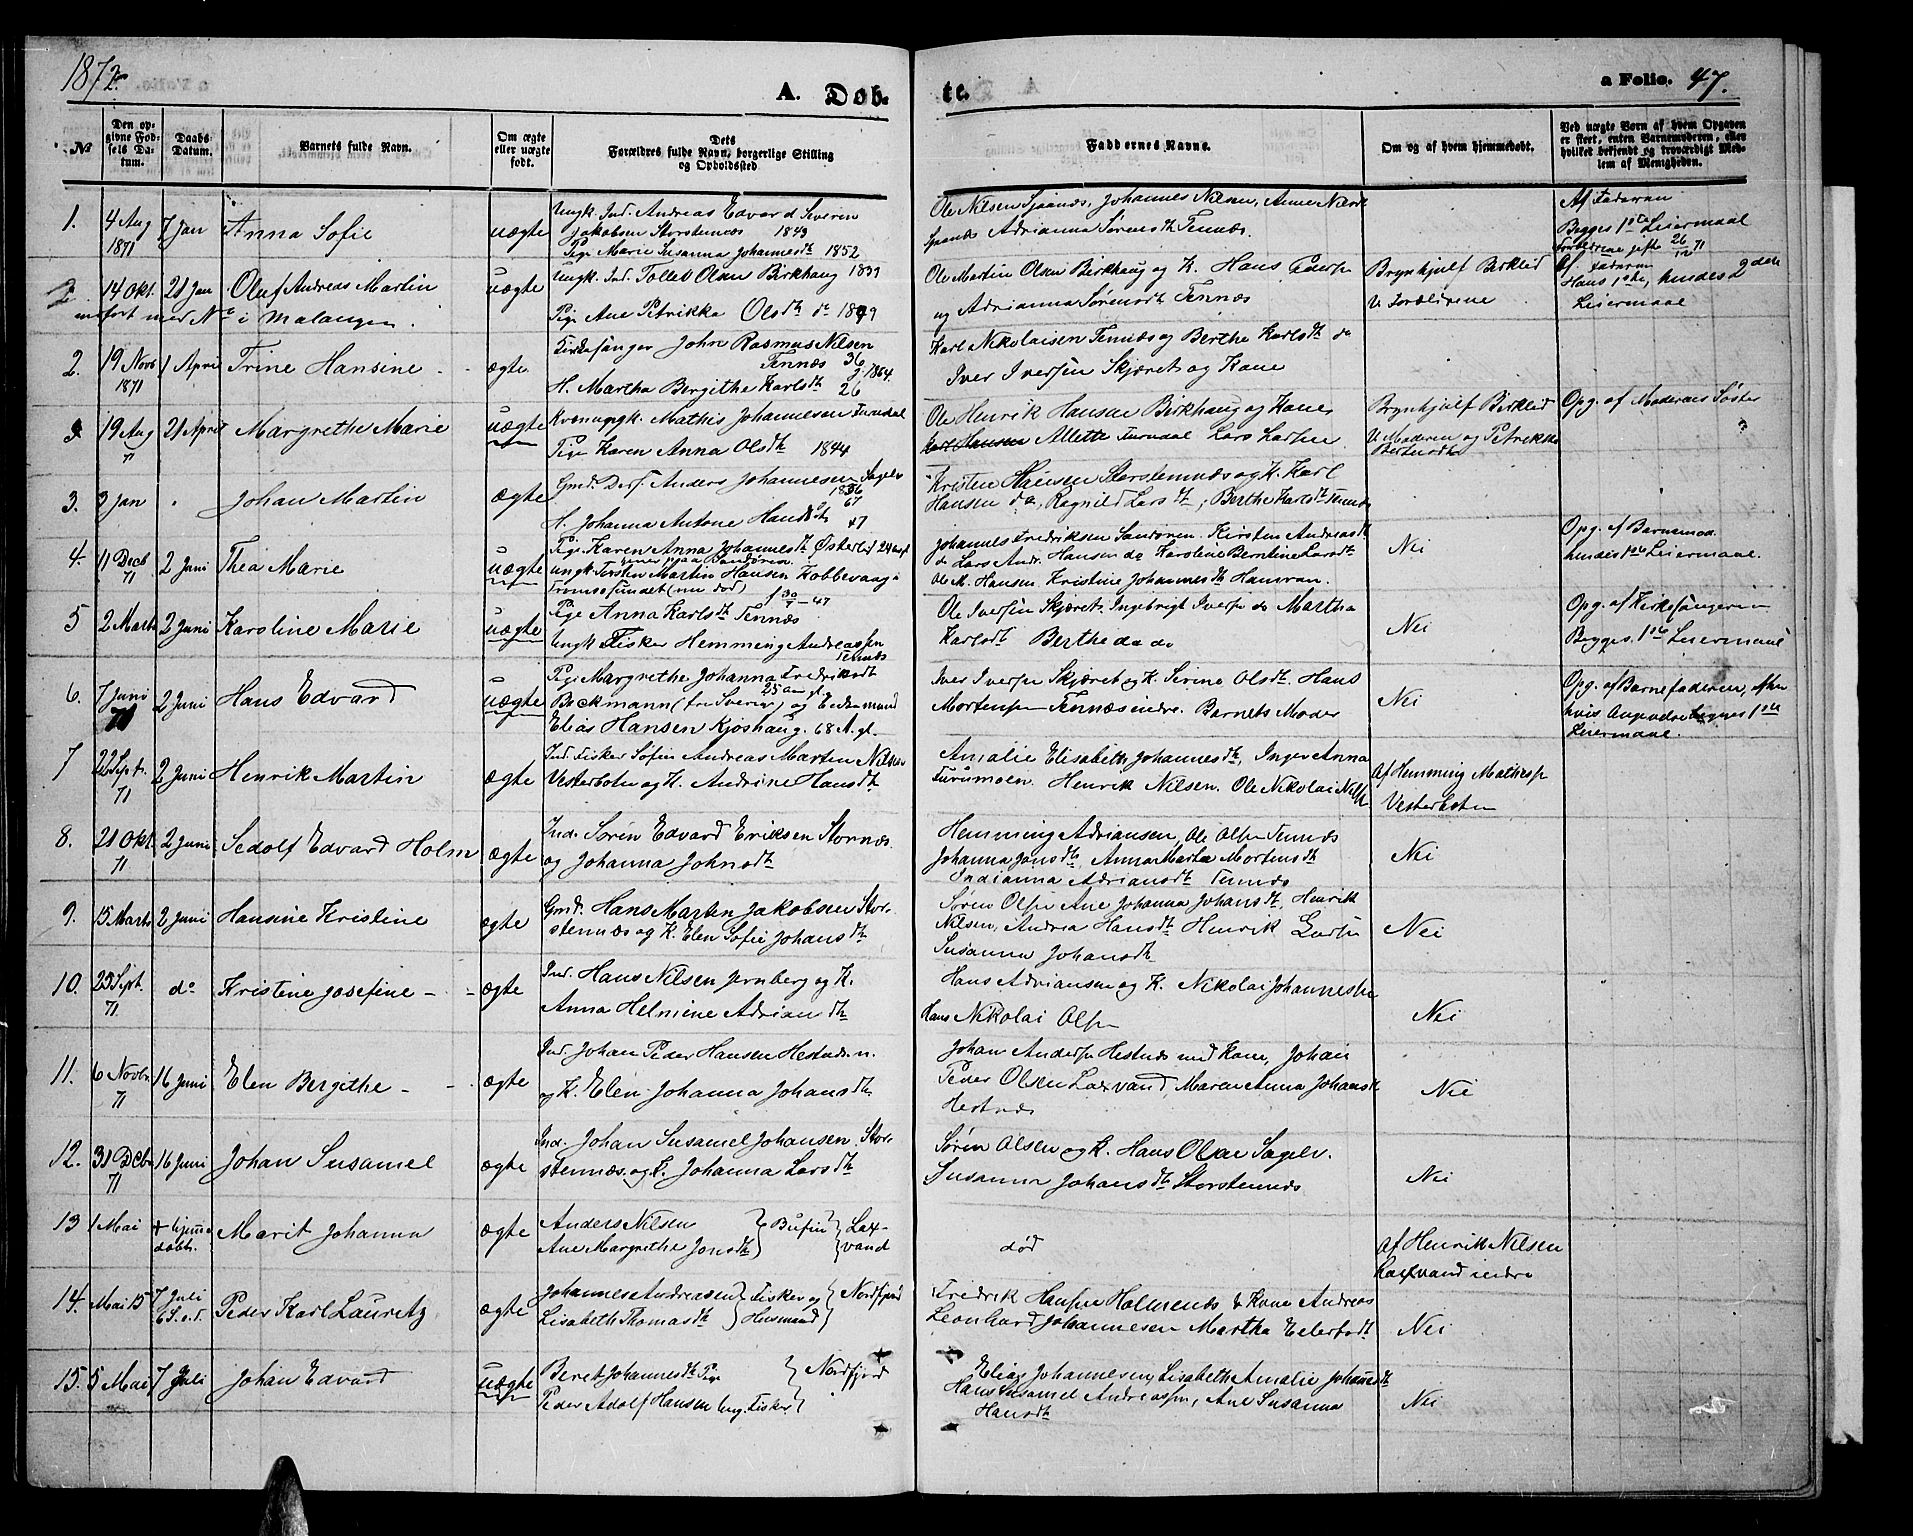 1872.
A. Døb-
te.
a Folio. 47.
№
Den op-
givne Fød-
sels Da-
tum.
Daabs-
Datum.
Barnets fulde Navn.
Om ægte
eller uægte
født.
Dets
Forældres fulde Navn, borgerlige Stilling
og Opholdssted
Faddernes Navne.
Om og af hvem hjemmedøbt.
Ved uægte Børn af hvem Opgaven
er skeet, enten Barnemoderen, eller
hvilket bekjendt og troværdigt Med-
lem af Menigheden.
1. 4 Aug 1871
7 Jan
Anna Sofie
uægte
Ungk. Ind. Andreas Edvard Severin
Jakobsen Storstennæs 1843
Pige Marie Susanna Johannesdt 1852
Ole Nilsen Spaanæs, Johannes Nilsen, Anne
Spaanæs Adrianna Sørensdt Tennæs.
Af Faderen
Begges 1ste Leiermaal
Forældrene gift 26/12 71
14 Okt.
21 Jan
Oluf Andreas Martin
indført med No i Malangen.
uægte
Ungk. Ind. Tollev Olsen Birkhaug 1839
Pige Ane Petrikka Olsdt do 1849
Ole Martin Olsen Birkhaug og K. Hans Peders
og Adrianna Sørensdt Tennæs
Brynhjulf Birklid
v Forældrene
Af Faderen
Hans 1ste, hendes 2den
Leiermaal
2. 19 Novb 1871
1 April
Trine Hansine
ægte
Kirkesanger John Rasmus Nilsen
Tennæs 36
g. 1864.
H. Martha Bergithe Karlsdt 26
Karl Nikolaisen Tennæs og Berthe Karlsdt do
Iver Iversen Skjæret og Kone
3 19 Aug 71
21 April
Margrethe Marie
uægte
Kvenungk. Mathis Johannesen Turudal
Pige Karen Anna Olsdt 1844
Ole Henrik Hansen Birkhaug og Kone,
Karl Hansen Allette Turudal Lars Larsen
Brynhjulf Birklid
v Moderen og Petrikke
Berntsdt
Opg. af Moderens Søster
3. 3 Jan
Johan Martin
ægte
Gmd. Derf. Anders Johannesen Sagelv
1836
67
H. Johanna Antone Hansdt 47
Kristen Hansen Storstennæs og K. Karl
Hansen do, Ragnild Larsdt, Berthe Karlsdt Tennæs
4. 11 Decb 71
2 Juni
Thea Marie
uægte
Pige Karen Anna Johannesdt Østerlid 24 aar
tjener paa Sandøren
ungk. Torsten Martin Hansen Kobbevaag i
Tromsøsundet (nu død)
Johannes Fredriksen Sandøren. Kirsten Andreasdt
do Lars Andr. Hansen do Karoline Berntine Larsdt
Ole M. Hansen. Kristine Johannesdt Hamran.
Nei
Opg. af Barnemod.
hendes 1ste Leiermaal.
5 2 Marts
2 Juni
Karoline Marie
uægte
f 30/9 - 47
Pige Anna Karlsdt Tennæs
Ungk Fisker Hemming Andreassen
Tennæs
Ole Iversen Skjæret. Ingebrigt Iversen do Martha
Karlsdt Berthe do do
Nei
Opg. af Kirkesangeren
Begges 1ste Leiermaal
6. 7 Juni 71
2 Juni
Hans Edvard
uægte
Pige Margrethe Johanna Fredriksdt
25 aar gl.
Beckmann (fra Sverige) og Enkemand
Elias Hansen Kjoshaug. 68 A. gl.
Iver Iversen Skjæret og K. Serine Olsdt. Hans
Mortensen Tennæs indre. Barnets Moder
Nei
Opg. af Barnefaderen, efter
hvis Angivelse begges 1ste
Leiermaal.
7 22 Sept. 71
2 Juni
Henrik Martin
ægte
Ind. Fisker Søfren Andreas Marten Nilsen
Vesterbotn og K. Andrine Hansdt
Amalie Elisabeth Johannesdt, Inger Anna
Furumoen. Henrik Nilsen. Ole Nikolai Nilsen
Af Hemming Mathesen
Vesterbotn
8. 21 Okt. 71
2 Juni
Sedolf Edvard Holm
ægte
Ind. Søren Edvard Eriksen Stornæs.
og Johanna Johnsdt
Hemming Adriansen, Ole Olsen Tennæs
Johanna Jonsdt. Anna Marta Mortensdt
Indianna Adriansdt Tennæs
Nei
9. 15 Marts
2 Juni
Hansine Kristine
ægte
Gmd. Hans Marten Jakobsen Stor-
stennæs og K. Elen Sofie Johansdt
Søren Olsen Ane Johanna Johansdt. Henrik
Nilsen, Andrea Hansdt Henrik Larsen
Susanna Johansdt
Nei
10. 25 Sept. 71
do
Kristine Josefine
ægte
Ind. Hans Nilsen Jernberg og K.
Anna Helmine Adriandt
Hans Adriansen og K. Nikolai Johannesen
Hans Nikolai Olsen
Nei
11. 6 Novbr 71
16 Juni
Elen Bergithe
ægte
Ind. Johan Peder Hansen Hestnæs n.
og K. Elen Johanna Johansdt
Johan Andersen Hestnæs med Kone, Johan
Peder Olsen Laxvand, Maren Anna Johansdt
Hestnæs
Nei
12. 31 Decb 71
16 Juni
Johan Susamel
ægte
Ind. Johan Susamel Johansen. Stor-
stennæs og K. Johanna Larsdt
Søren Olsen og K. Hans Olai Sagelv.
Susanna Johansdt Storstennæs
Nei
13 1 Mai
+ hjemme
døbt.
Marit Johanna
ægte
Anders Nilsen
Ane Margrethe Jonsdt
Bufin
Lax-
vand
død
Af Henrik Nilsen
Laxvand indre
14. Mai 15
7 Juli
6 S. e. T.
Peder Karl Lauretz
ægte
Johannes Andreasen
Lisabeth Thomasdt
Fisker og
Husmand
Nordfjord
Fredrik Hansen Holmenæs & Kone Andreas
Leonhard Johannesen Martha Elertsdt
Nei
15. 5 Mai
7 Juli
Johan Edvard
uægte
Beret Johannesdt Pige
Peder Adolf Hansen Ung. Fisker
Nordfjord
Elias Johannesen, Lisabeth Amalie Johansdt
Hans Susamel Andreassen, Ane Susanna
Hansdt
Nei